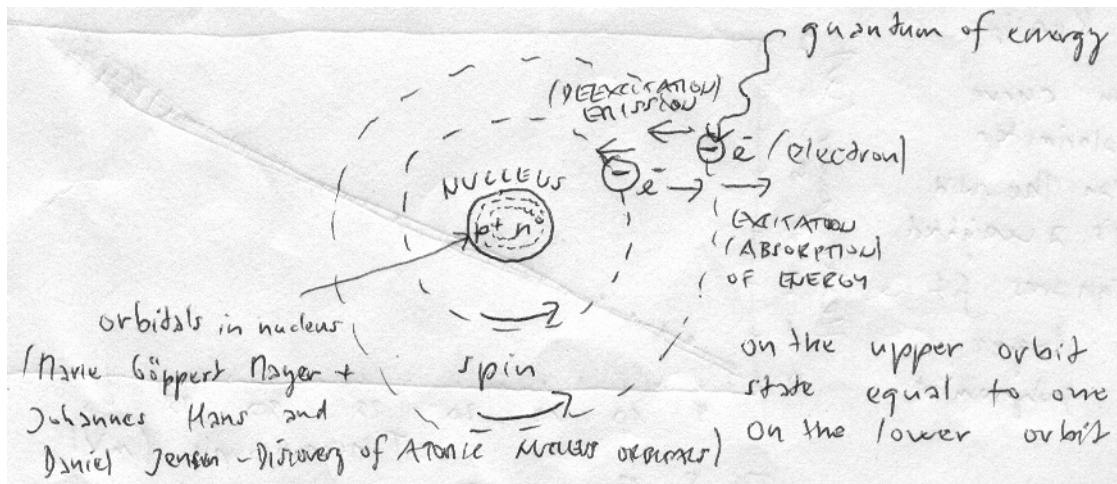 quantum of energy
(DEEXCITATION)
EMISSION
⊖ e⁻ (electron)
NUCLEUS
⊖ e⁻
p⁺ n⁰
EXCITATION
(ABSORPTION)
OF ENERGY
orbitals in nucleus
(Marie Göppert Mayer +
Johannes Hans and
Daniel Jensen - Discovery of ATOMIC NUCLEUS ORBITALS)
spin
on the upper orbit
state equal to one
on the lower orbit